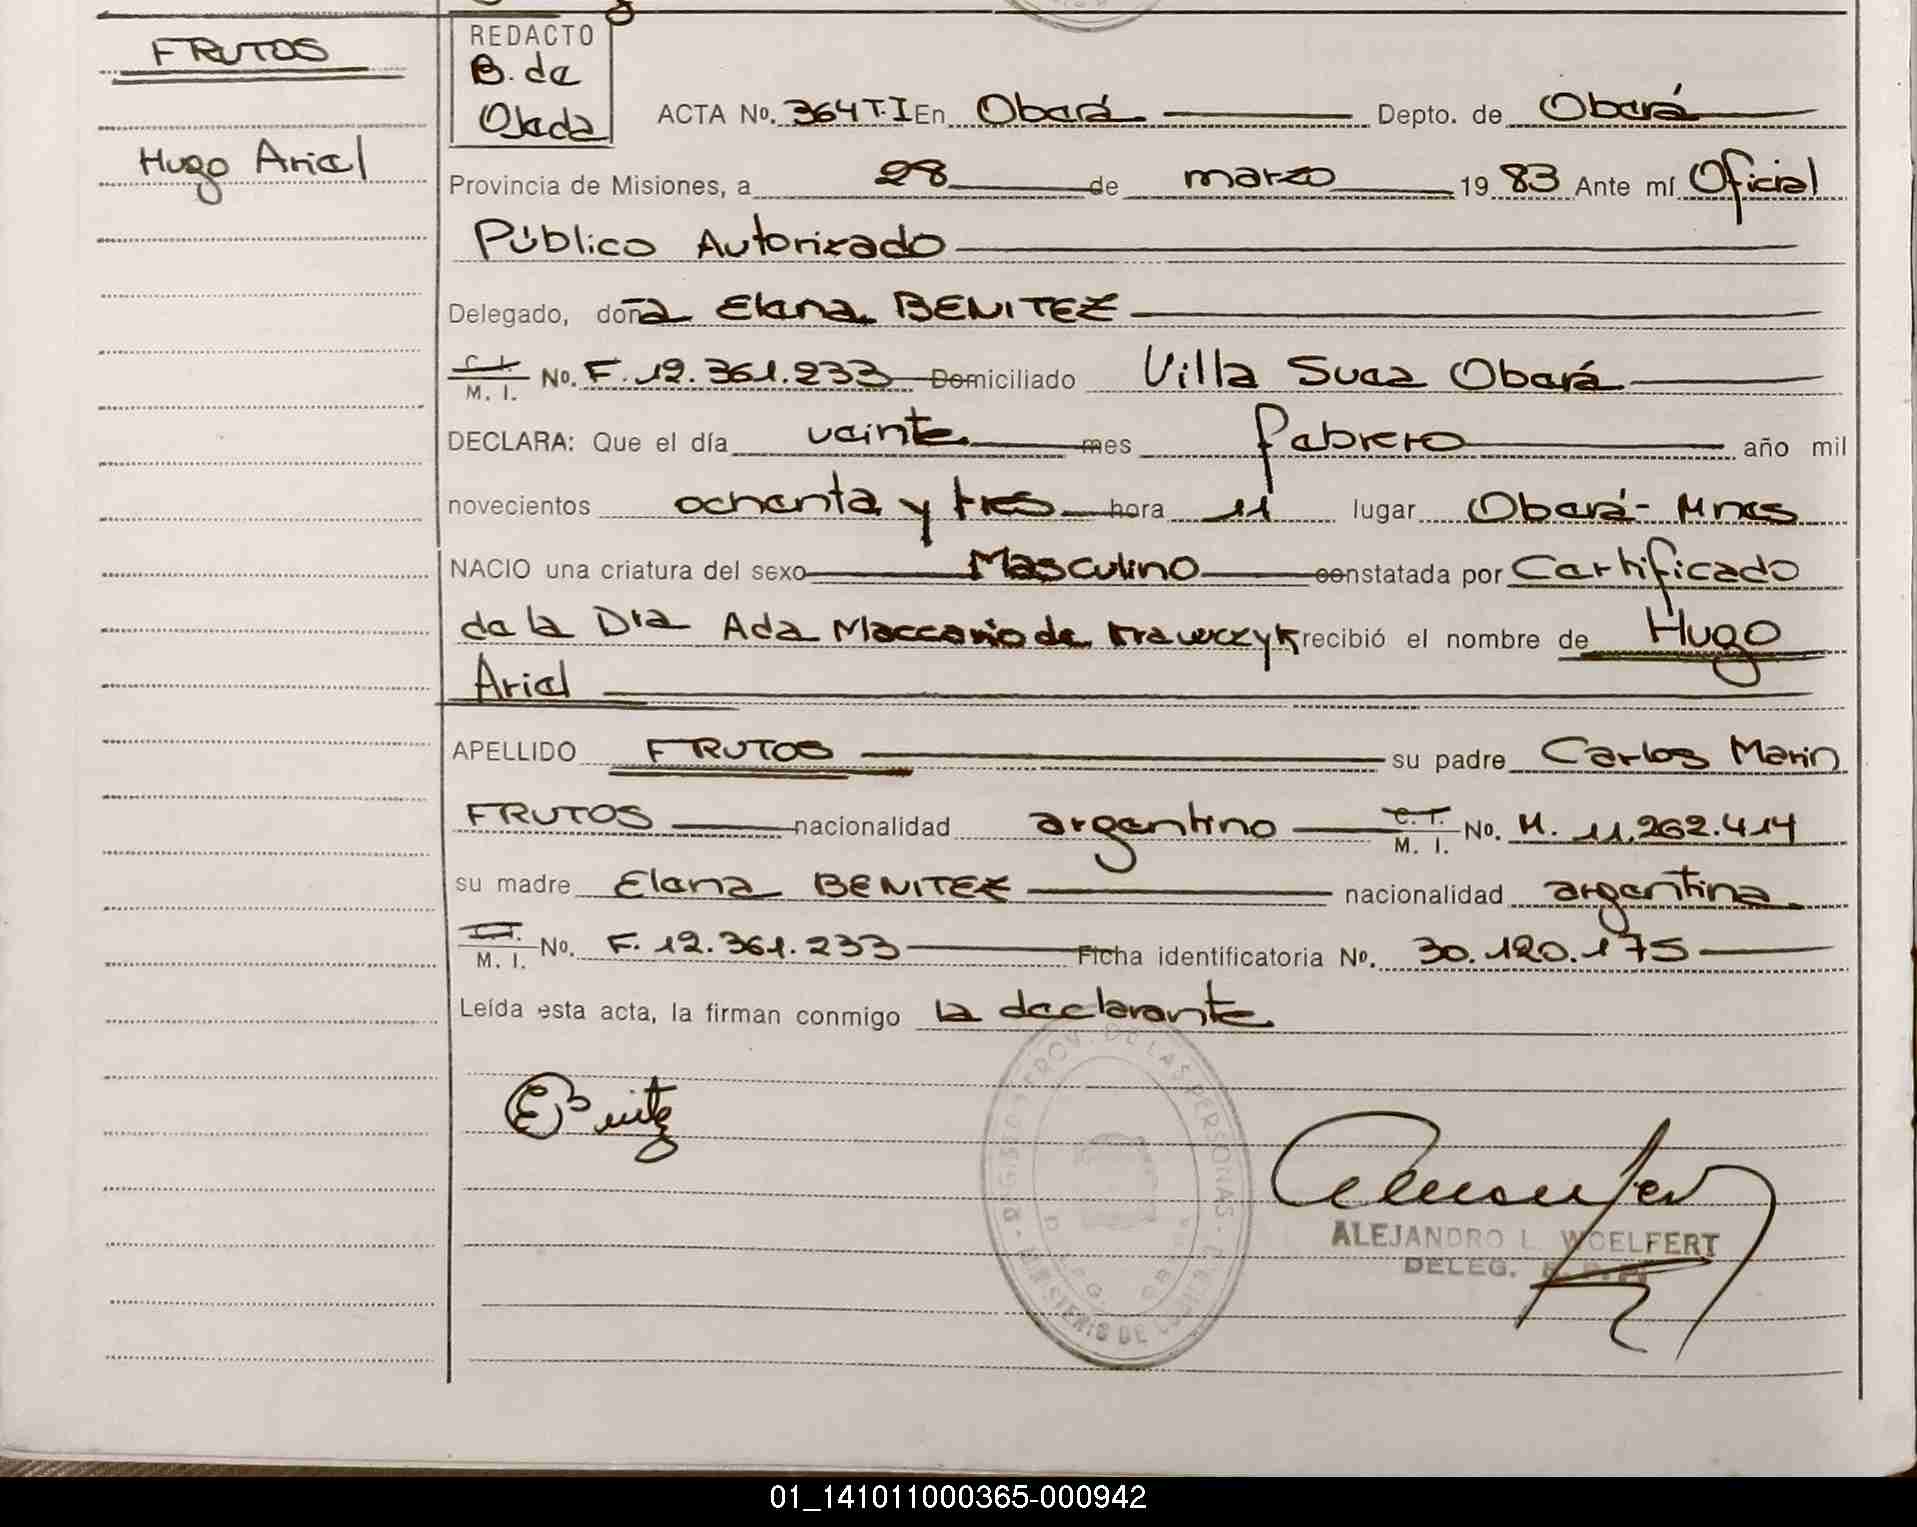 FRUTOS
Hugo Ariel
REDACTO
B. de
Ojeda
ACTA No. 364 T.I En Oberá Depto. de Oberá
Provincia de Misiones, a 28 de marzo 1983 Ante mí Oficial
Público Autorizado
Delegado, doña Elena BENITEZ
C. I.
M. I. No. F. 12.361.233 Domiciliado Villa Suea Oberá
DECLARA: Que el día veinte mes febrero año mil
novecientos ochenta y tres hora 11 lugar Oberá - Mnes
NACIO una criatura del sexo Masculino constatada por Certificado
de la Dra Ada Maccario de Krawczyk recibió el nombre de Hugo
Ariel
APELLIDO FRUTOS su padre Carlos Marin
FRUTOS nacionalidad argentino C. I.
M. I. No. M. 11.262.414
su madre Elena BENITEZ nacionalidad argentina
M. I. No. F. 12.361.233 Ficha identificatoria No. 30.120.175
Leída esta acta, la firman conmigo la declarante
EBenitz
REGISTRO PROV. DE LAS PERSONAS
MINISTERIO DE
ALEJANDRO L. WOELFERT
DELEG. R. P. P.
01_141011000365-000942